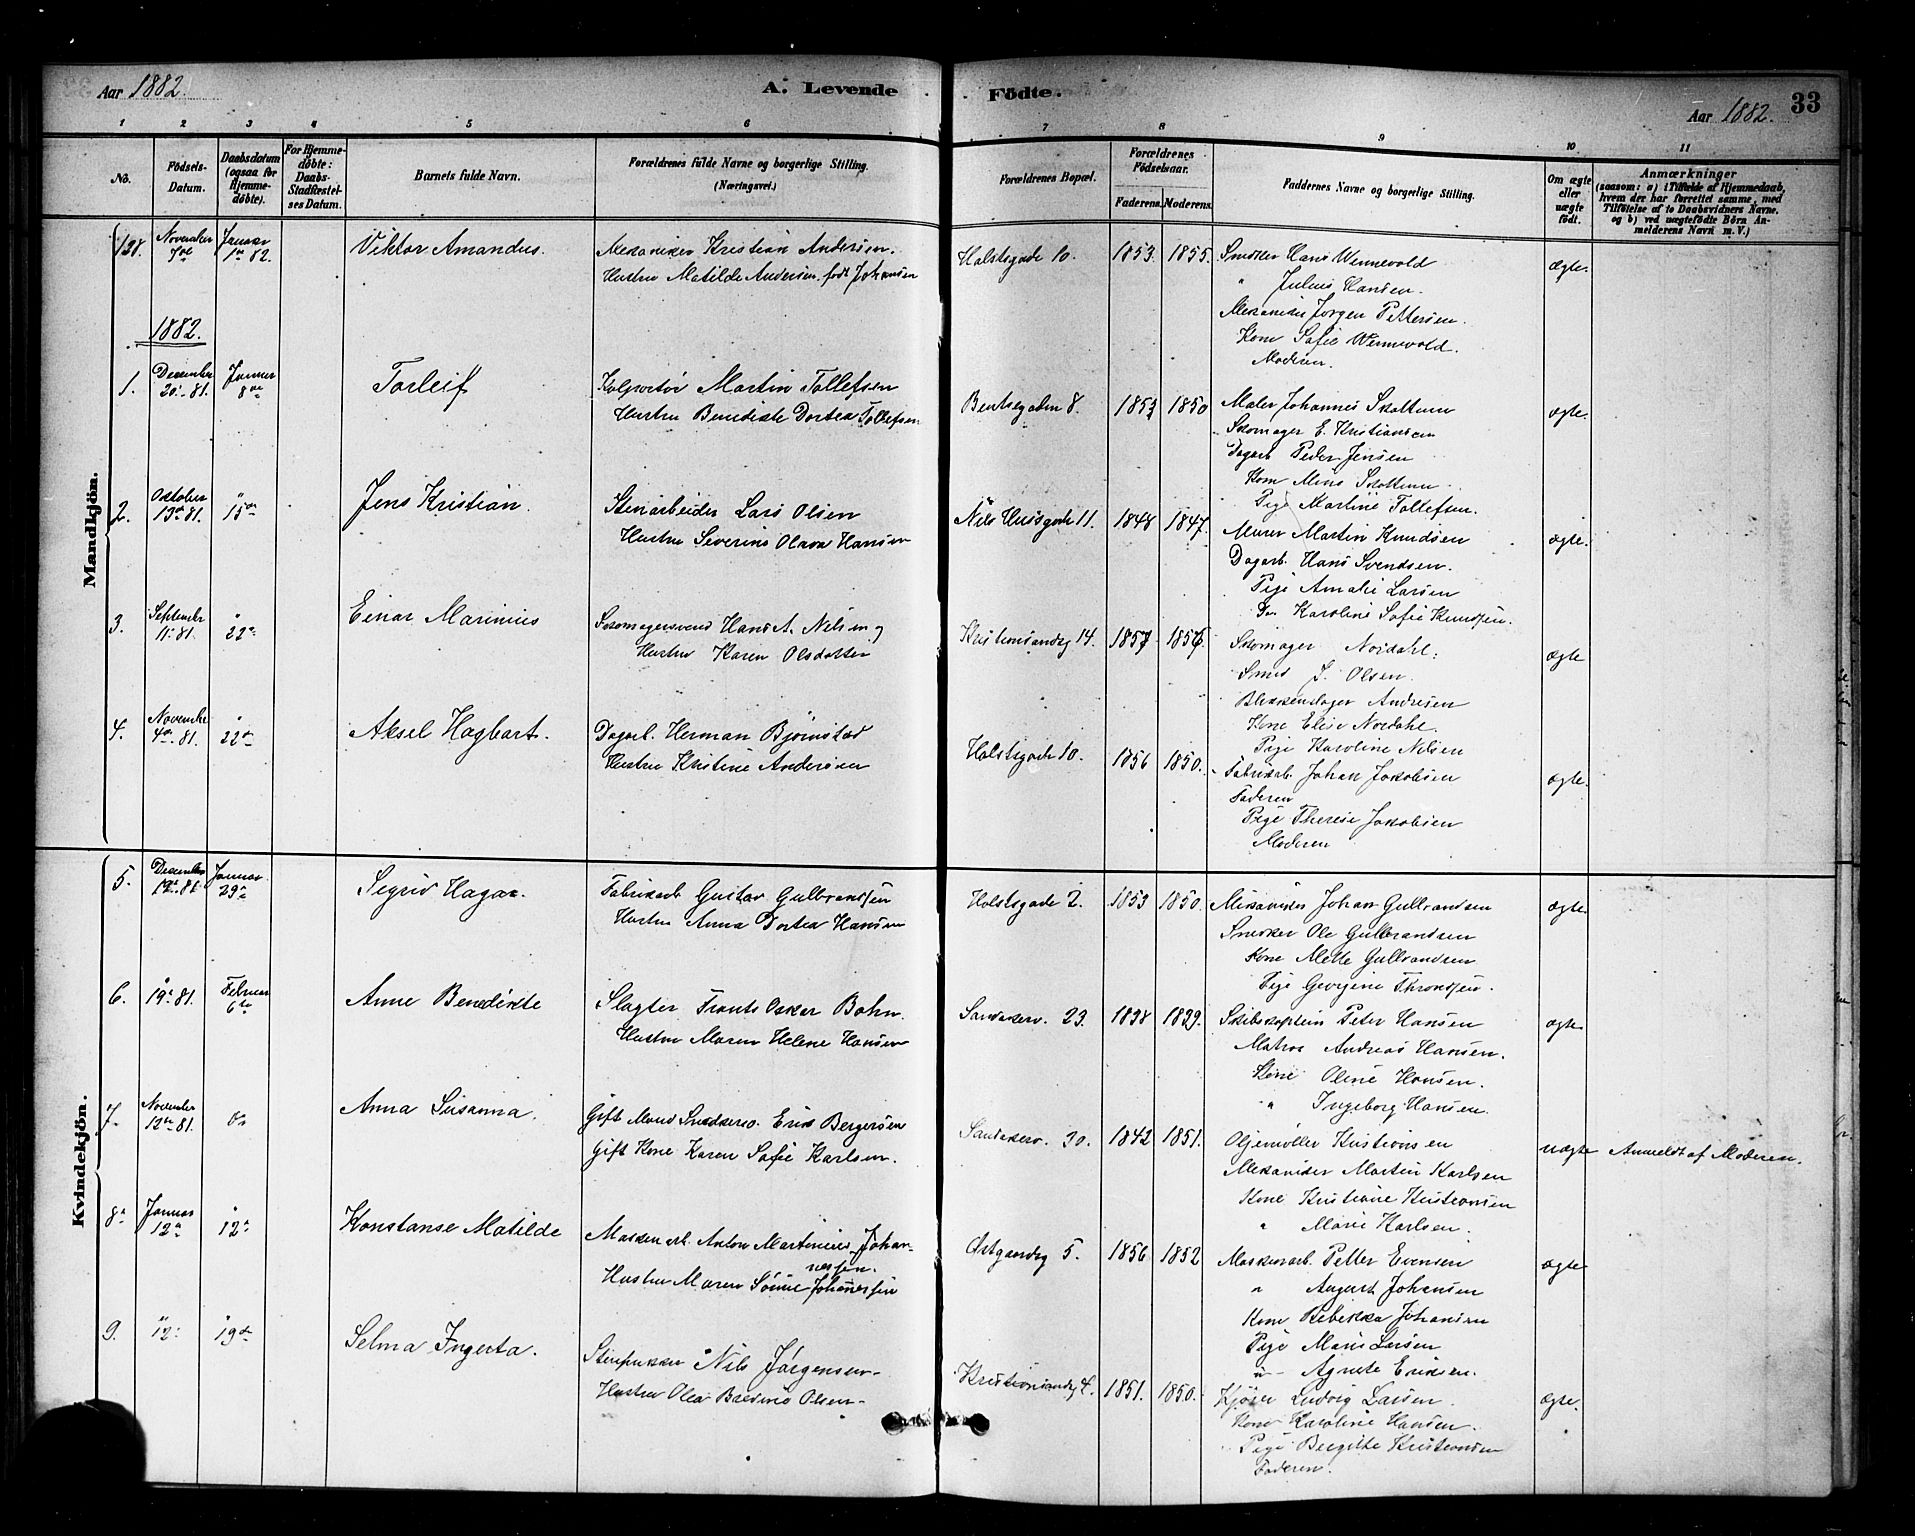 Aar 1882.
A. Levende
Födte.
Aar 1882.
33
1 2 3 4 5 6 7 8 9 10 11
No.
Födsels-Datum.
Daabsdatum (ogsaa for Hjemme-döbte).
For Hjemme-döbte: Daabs-Stadfæstel-ses Datum.
Barnets fulde Navn.
Forældrenes fulde Navne og borgerlige Stilling. (Næringsvei.)
Forældrenes Bopæl.
Forældrenes Födselsaar.
Faderens. Moderens.
Faddernes Navne og borgerlige Stilling.
Om ægte eller uægte födt.
Anmærkninger
(saasom: a) i Tilfælde af Hjemmedaab, hvem der har forrettet samme, med Tilföielse af to Daabsvidners Navne, og b) ved uægtefödte Börn An-melderens Navn m. V.)
Mandkjön.
128. November 9de Januar 1ste 82. Viktor Amandus.
Mekaniker Kristian Andersen.
Hustru Matilde Andersen, født Johansen
Holstsgade 10. 1853. 1855.
Smelter Hans Wennevold
" Julius Hansen.
Mekaniker Jørgen Pettersen.
Kone Sofie Wennevold.
Moderen.
ægte.
1882.
1. Desember 20.-81. Januar 8de Torleif
Kolportør Martin Tollefsen
Hustru Benedikte Dortea Tollefsen
Bentsegaden 8. 1853 1850
Maler Johannes Skottum
Skomager E. Kristiansen
Dagarb. Peder Jensen
Kone Mina Skottum
Pige Martine Tollefsen.
ægte.
2. Oktober 13de 81. " 15de Jens Kristian.
Stenarbeider Lars Olsen
Hustru Severine Olava Hansen
Nils Huusgade 11. 1848 1847.
Murer Martin Knudsen
Dagarb. Hans Svendsen.
Pige Amalie Larsen
Do Karoline Sofie Knudsen.
ægte.
3. September 11.-81. " 22de Einar Marinius
Skomagersvend Hans A. Nilsen og
Hustru Karen Olsdatter
Kristiansandsg 14. 1857
Skomager Nordahl.
Smed J. Olsen.
Blikkenslager Andresen
Kone Elise Nordahl.
Pige Karoline Nilsen
ægte
4. November 4de 81. " 22de Aksel Hagbart.
Dagarb. Herman Bjørnstad
Hustru Kristine Andersen
Holstsgade 10. 1856 1850.
Fabrikarb. Johan Jakobsen
Faderen
Pige Therese Jakobsen
Moderen
ægte.
Kvindekjön.
5. Desember 12te 81. Januar 29de Sigrid Hagar.
Fabrikarb. Gustav Gulbrandsen
Hustru Anna Dortea Hansen
Holstsgade 2. 1853 1850.
Mekaniker Johan Gulbrandsen
Snekker Ole Gulbrandsen
Kone Mette Gulbrandsen
Pige Georgine Throndsen.
ægte.
6. " 19de 81. Februar 6te Anne Benedikte
Slagter Frants Oskar Bohn.
Hustru Maren Helene Hansen
Sandakerv. 23. 1838 1839.
Skibskaptein Peter Hansen
Matros Andreas Hansen.
Kone Oline Hansen.
" Ingeborg Hansen.
ægte
7. November 12te 81. Do Anna Susanna.
Gift Mand Snedkersv. Erik Bergersen
Gift Kone Karen Sofie Karlsen.
Sandakerv. 30. 1842 1851.
Oljemøller Kristiansen
Mekaniker Martin Karlsen
Kone Kristiane Kristiansen
" Marie Karlsen.
uægte Anmeldt af Moderen.
8. Januar 12te " 12te Konstanse Matilde
Maskinarb. Anton Martinius Johan-
nessen.
Hustru Maren Johannessen
Østgaardsg 5. 1856 1852
Maskinarb. Petter Evensen
" August Johansen
Kone Rebekka Johansen
Pige Marie Larsen
" Agnete Eriksen.
ægte
9. " 12te " 19de Selma Ingerta.
Stenpukker Nils Jørgensen
Hustru Olea Baldine Olsen
Kristiansandsg 4. 1851. 1850.
Kjører Ludvig Larsen.
Kone Karoline Hansen.
Pige Bergitte Kristiansen
Faderen.
ægte.